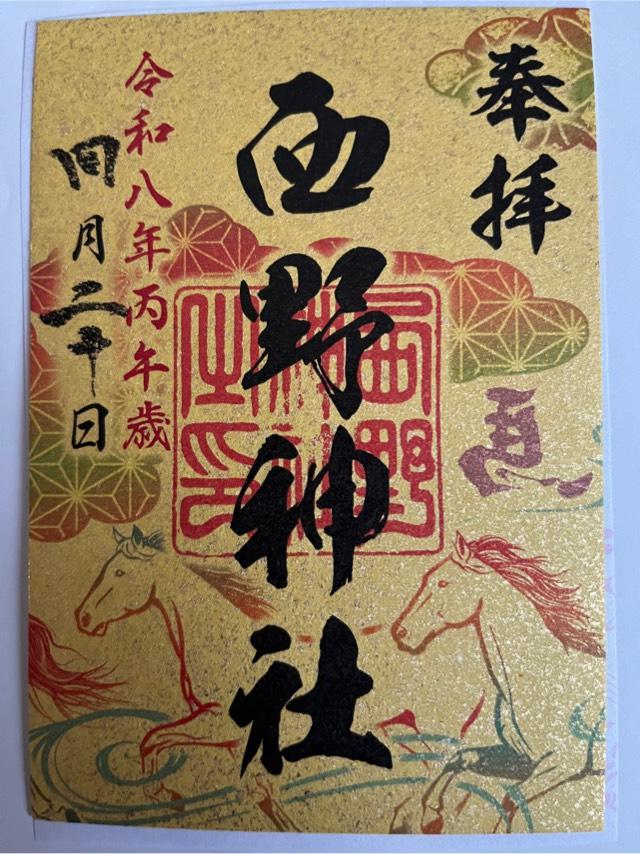 奉拝
西野神社
西野
神社
之印
令和八年丙午歳
四月二十日